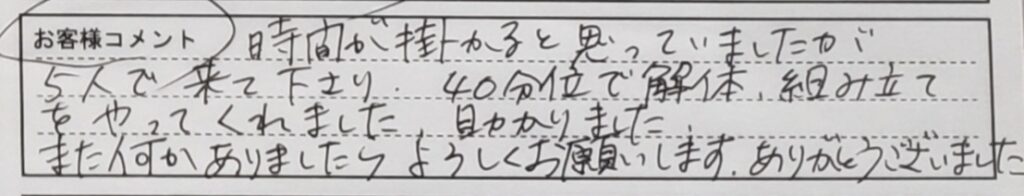 お客様コメント 時間が掛かると思っていましたが
5人で来て下さり、40分位で解体、組み立て
をやってくれました、目かかりました
また何かありましたらよろしくお願いします。ありがとうございました